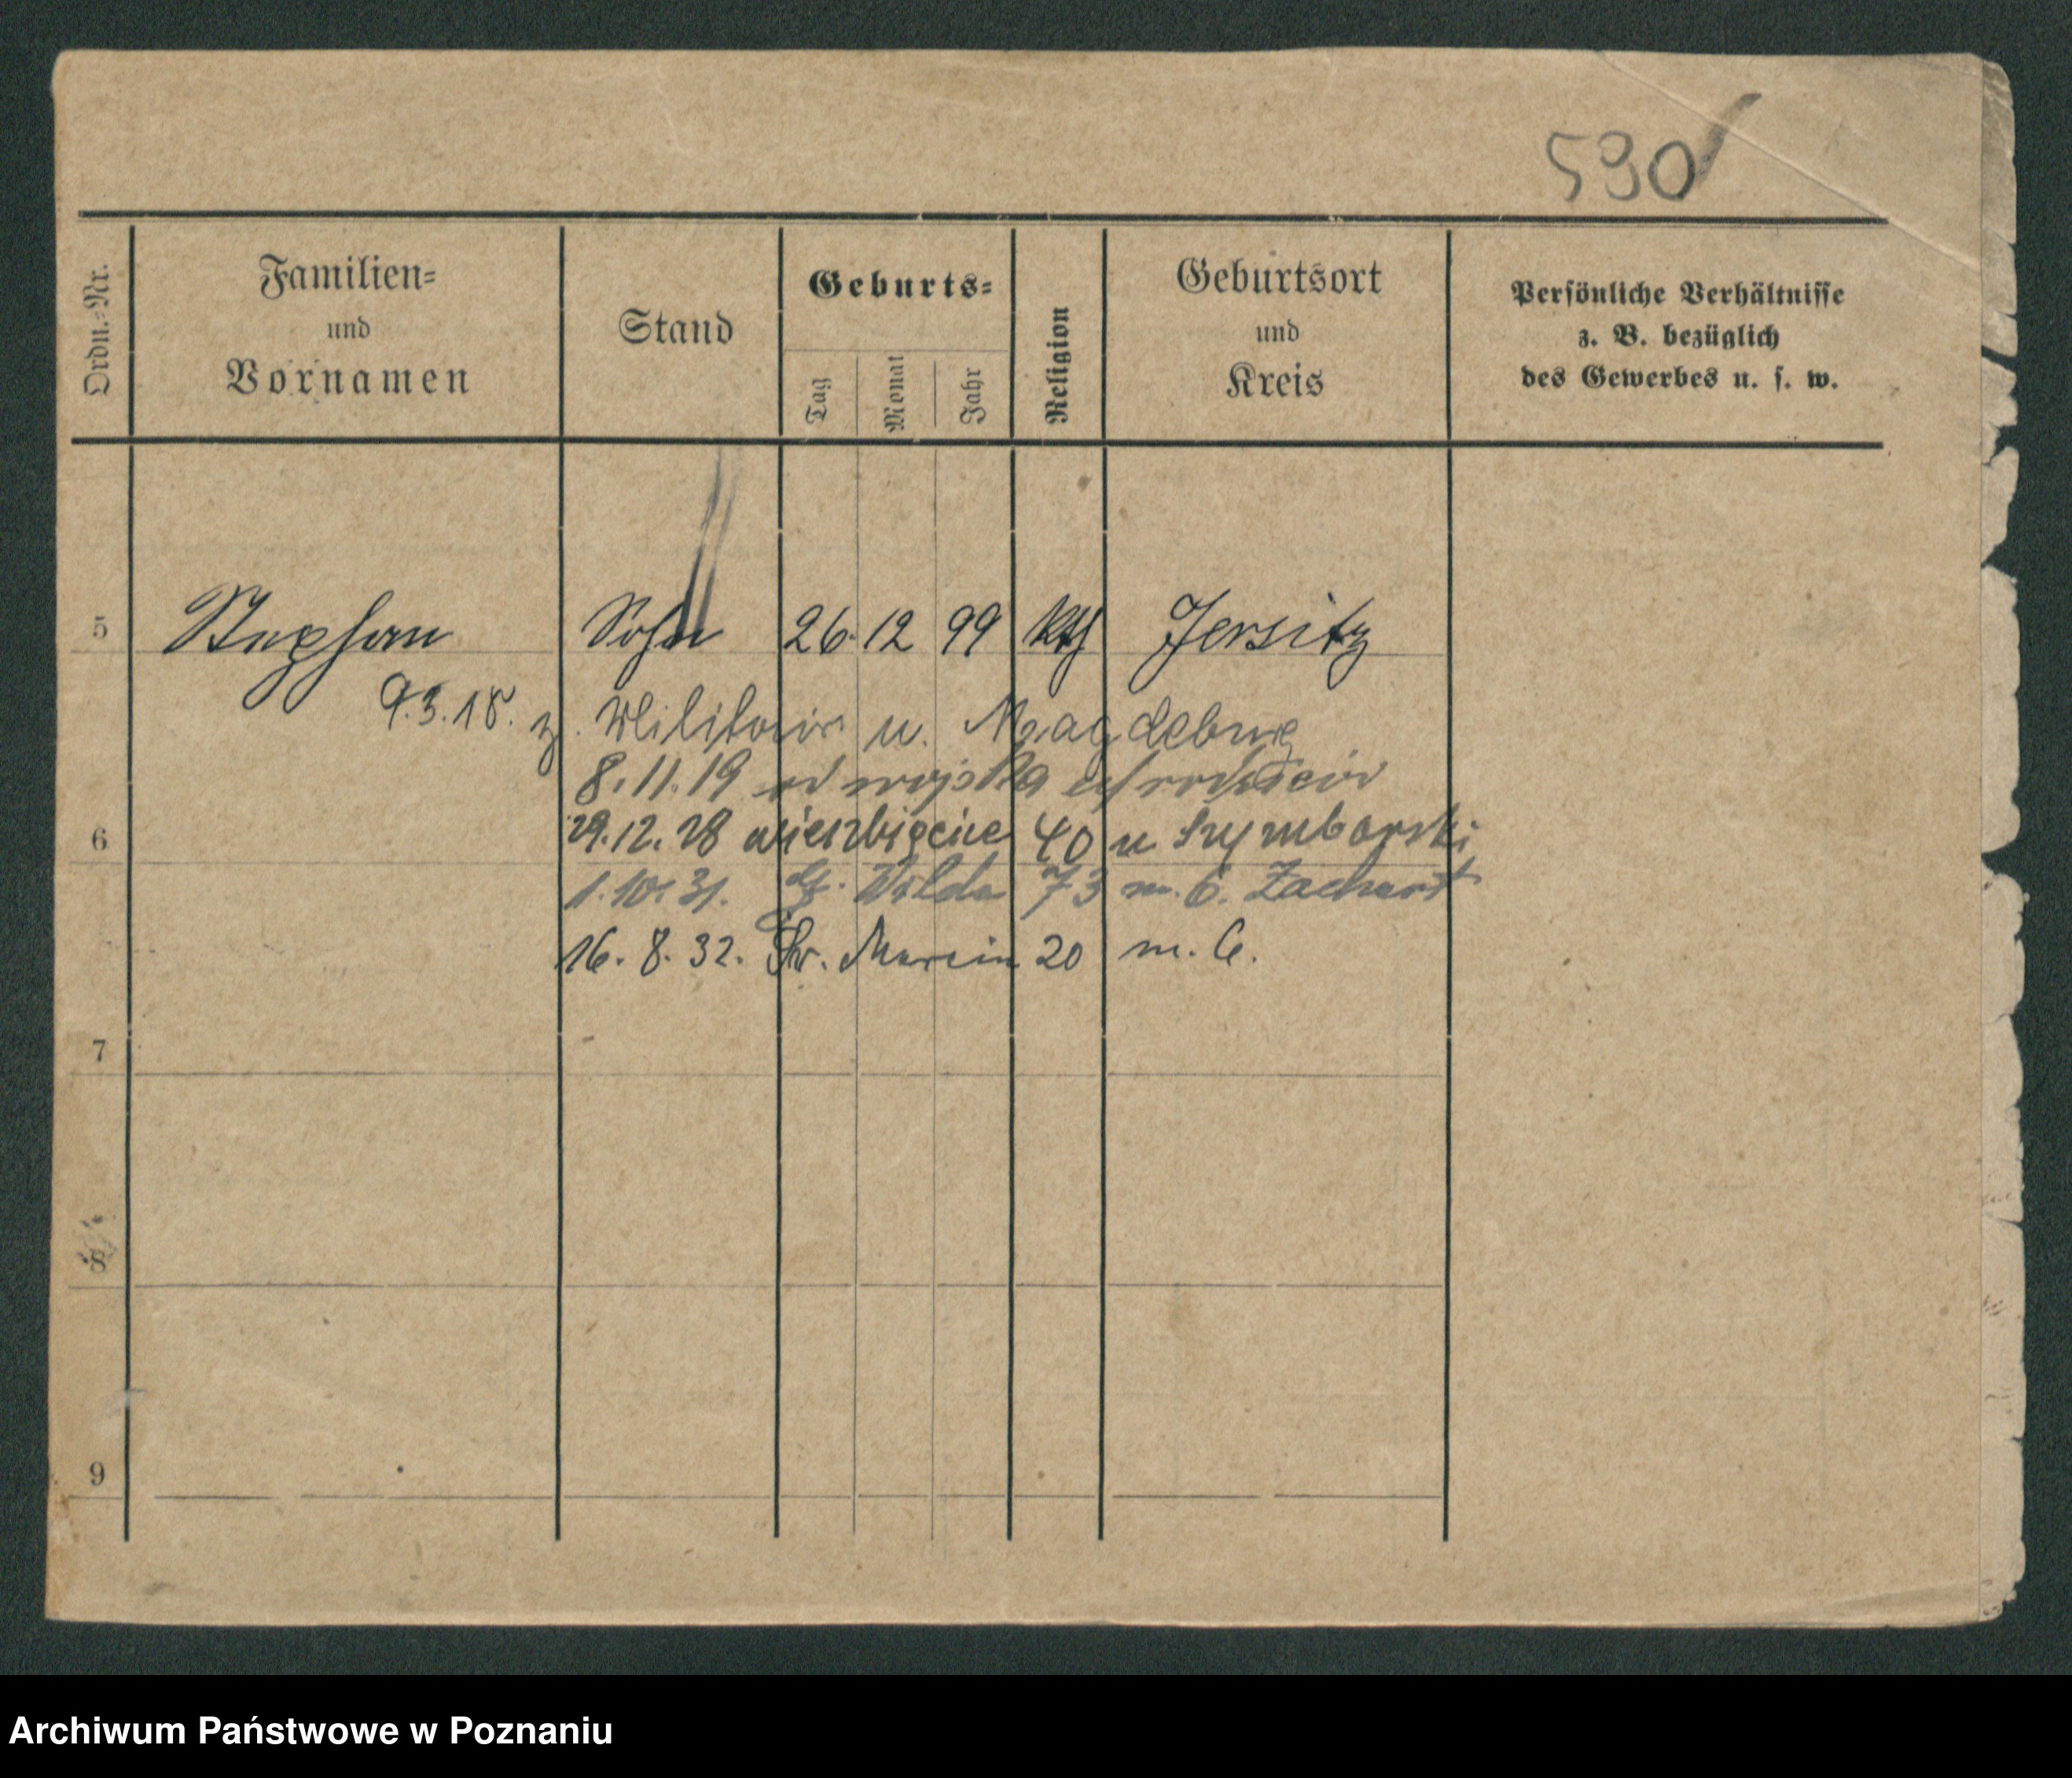 590
Ordn.-Nr.
Familien-
und
Vornamen
Stand
Geburts-
Tag
Monat
Jahr
Religion
Geburtsort
und
Kreis
Persönliche Verhältnisse
z. B. bezüglich
des Gewerbes u. s. w.
5 Stephan Sohn 26. 12 99 kth Jersitz
9.3.18. z. Militair n. Magdeburg
8.11.19 od wojska
6
29.12.28 wierzbięcice 40 u Szymborski
1.10.31. Wilda 73 m. b. Zachert
16. 8. 32. Św. Marcin 20 m. b.
7
8
9
Archiwum Państwowe w Poznaniu